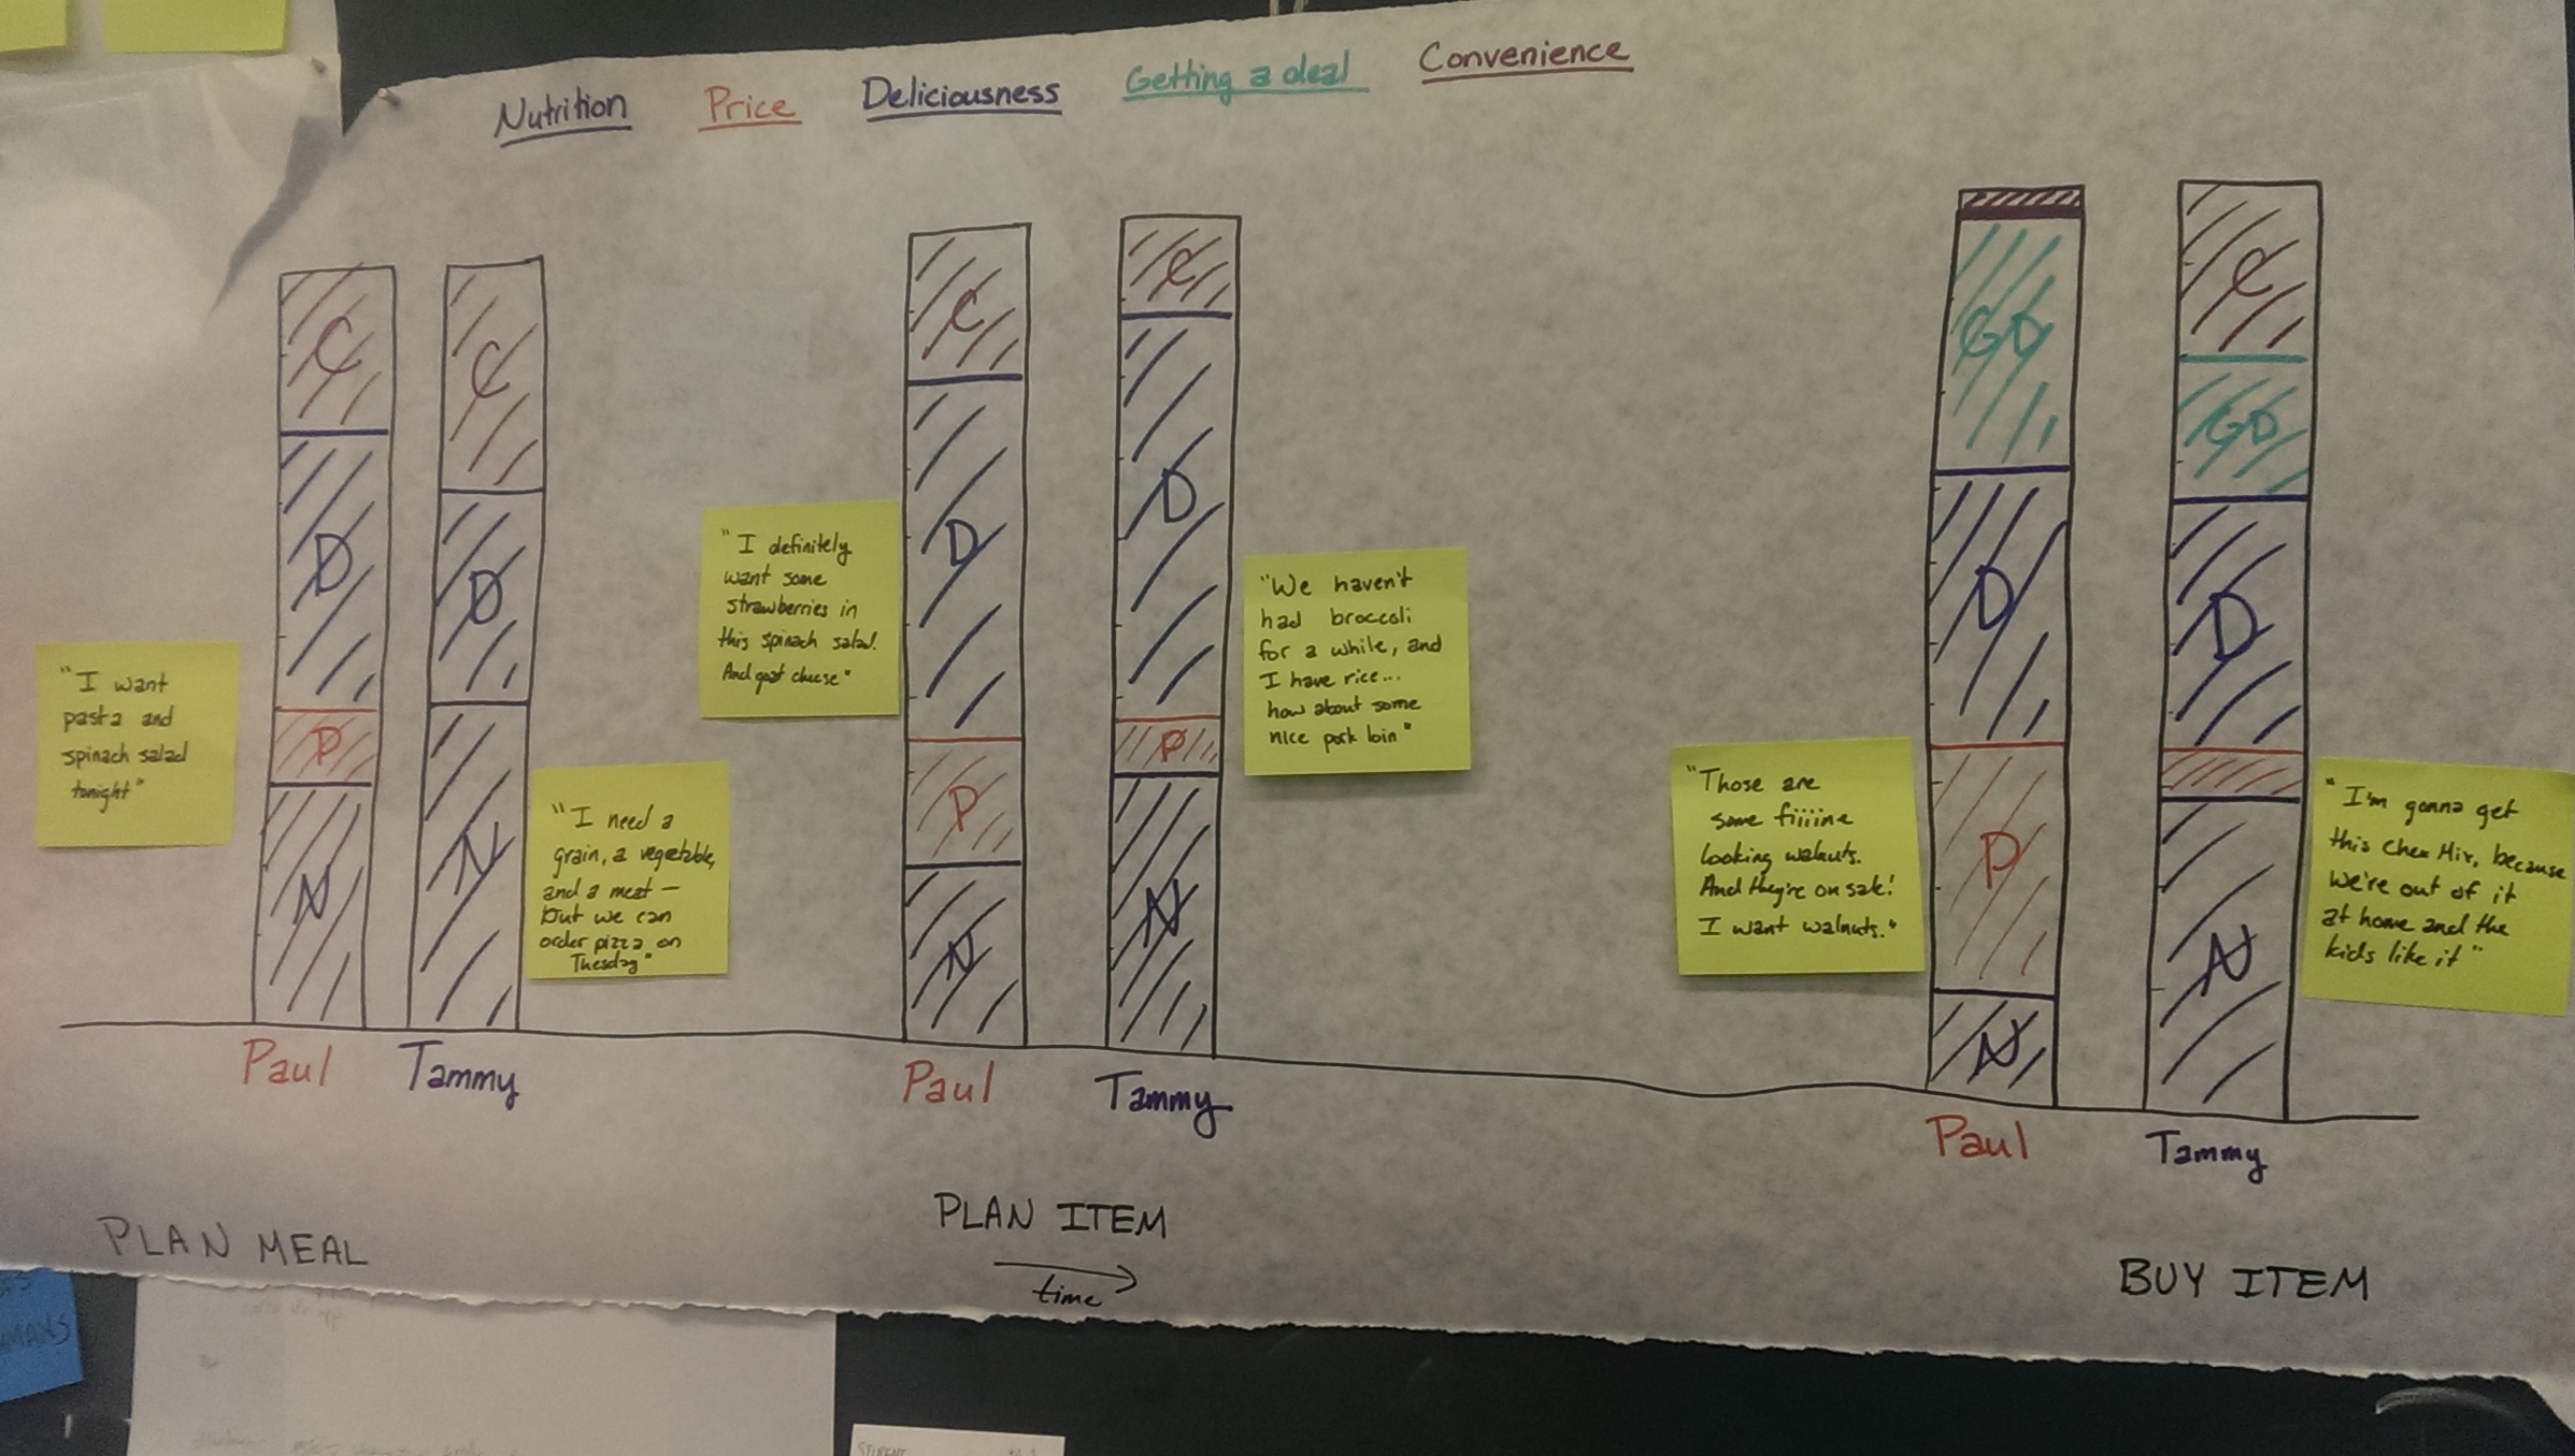 Nutrition Price Deliciousness Getting a deal Convenience
C
D
P
N
C
D
N
"I want
pasta and
spinach salad
tonight"
"I need a
grain, a vegetable,
and a meat —
but we can
order pizza on
Tuesday"
Paul Tammy
PLAN MEAL
C
D
P
N
C
D
P
N
"I definitely
want some
strawberries in
this spinach salad.
And goat cheese"
"We haven't
had broccoli
for a while, and
I have rice...
how about some
nice pork loin"
Paul Tammy
PLAN ITEM
time
GD
D
P
N
C
GD
D
N
"Those are
some fiiiine
looking walnuts.
And they're on sale!
I want walnuts."
"I'm gonna get
this Chex Mix, because
we're out of it
at home and the
kids like it"
Paul Tammy
BUY ITEM
STUDENT